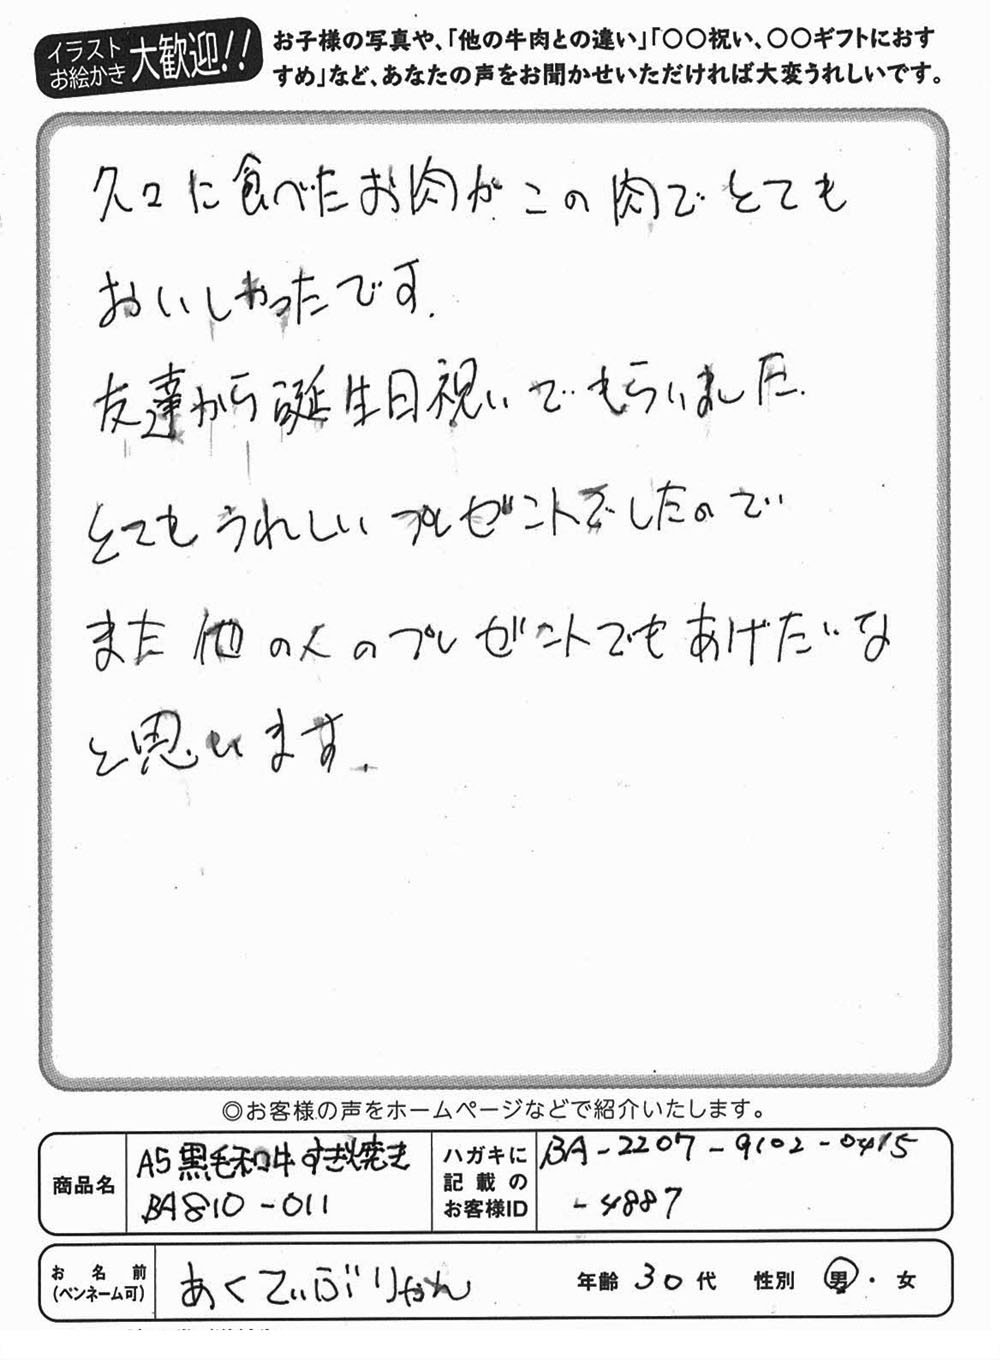 イラスト
お絵かき
大歓迎!!
お子様の写真や、「他の牛肉との違い」「〇〇祝い、〇〇ギフトにおす
すめ」など、あなたの声をお聞かせいただければ大変うれしいです。
久々に食べたお肉がこの肉でとても
おいしかったです.
友達から誕生日祝いでもらいました.
とてもうれしいプレゼントでしたので
また他の人のプレゼントでもあげたいな
と思います.
◎お客様の声をホームページなどで紹介いたします。
商品名
A5黒毛和牛すき焼き
BA810-011
ハガキに
記載の
お客様ID
BA-2207-9102-0415
-4887
お名前
(ペンネーム可)
あくてぃぶりゃん
年齢 30代 性別 男・女